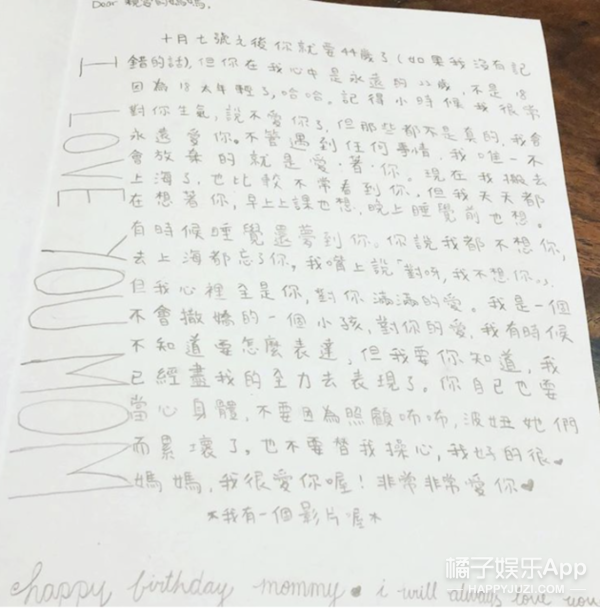 Dear 親愛的媽媽,
十月七號之後你就要44歲了(如果我沒有記
錯的話),但你在我心中是永遠的22歲,不是18
因為18太年輕了,哈哈。記得小時候我很常
對你生氣,說不愛你了,但那些都不是真的,我會
永遠愛你。不管遇到任何事情,我唯一不
會放棄的就是愛·著·你。現在我搬去
上海了,也比較不常看到你,但我天天都
在想著你,早上上課也想,晚上睡覺前也想。
有時候睡覺還夢到你。你說我都不想你,
去上海都忘了你,我嘴上說「對呀,我不想你」,
但我心裡全是你,對你滿滿的愛。我是一個
不會撒嬌的一個小孩,對你的愛,我有時候
不知道要怎麼表達,但我要你知道,我
已經盡我的全力去表現了。你自己也要
當心身體,不要因為照顧咘咘,波妞她們
而累壞了。也不要替我操心,我好的很♥
媽媽,我很愛你喔!非常非常愛你♥
*我有一個影片喔*
I LOVE YOU MOM
happy birthday mommy♥ i will always love you
橘子娱乐App
HAPPYJUZI.COM